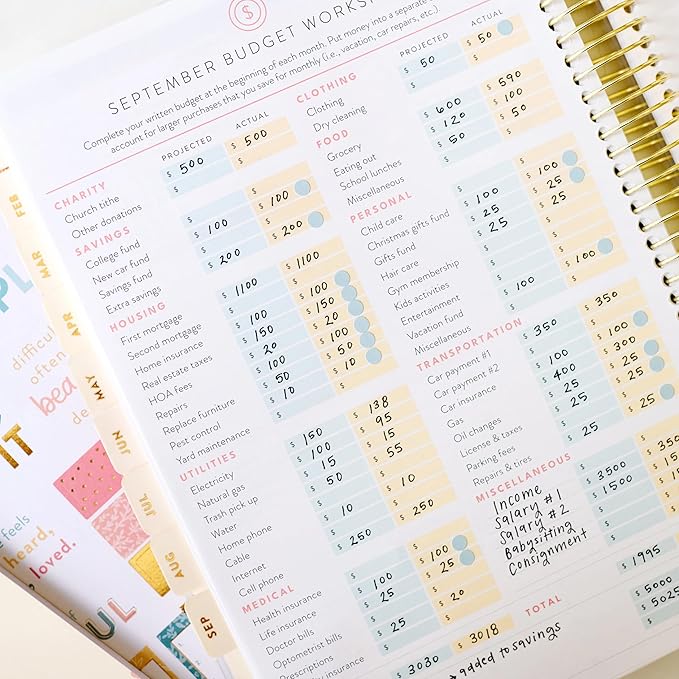 SEPTEMBER BUDGET WORKS
Complete your written budget at the beginning of each month. Put money into a separate
account for larger purchases that you save for monthly (i.e., vacation, car repairs, etc.).
PROJECTED ACTUAL
CHARITY
Church tithe $ 500 $ 500
Other donations $ $
SAVINGS
College fund $ $
New car fund $ 100 $ 100
Savings fund $ $
Extra savings $ 200 $ 200
HOUSING
First mortgage $ 1100 $ 1100
Second mortgage $ $
Home insurance $ 100 $ 100
Real estate taxes $ 150 $ 150
HOA fees $ 20 $ 20
Repairs $ 100 $ 100
Replace furniture $ 50 $ 50
Pest control $ 10 $ 10
Yard maintenance $ $
UTILITIES
Electricity $ 150 $ 138
Natural gas $ 100 $ 95
Trash pick up $ 15 $ 15
Water $ 50 $ 55
Home phone $ $
Cable $ 10 $ 10
Internet $ $
Cell phone $ 250 $ 250
MEDICAL
Health insurance $ 100 $ 100
Life insurance $ 25 $ 25
Doctor bills $ $
Optometrist bills $ 25 $ 20
Prescriptions $ $
insurance
$ 3030 $ 3018
added to savings
PROJECTED ACTUAL
CLOTHING
Clothing $ 50 $ 50
Dry cleaning $ $
FOOD
Grocery $ 600 $ 590
Eating out $ 120 $ 100
School lunches $ 50 $ 50
Miscellaneous $ $
PERSONAL
Child care $ $
Christmas gifts fund $ 100 $ 100
Gifts fund $ 25 $ 25
Hair care $ 25 $ 25
Gym membership $ $
Kids activities $ $
Entertainment $ $
Vacation fund $ 100 $ 100
Miscellaneous $ $
TRANSPORTATION
Car payment #1 $ 350 $ 350
Car payment #2 $ $
Car insurance $ 100 $ 100
Gas $ 400 $ 300
Oil changes $ 25 $ 25
License & taxes $ 25 $
Parking fees $ $
Repairs & tires $ 25 $ 25
MISCELLANEOUS
Income
Salary #1 $ 3500 $ 350
Salary #2 $ 1500 $
Babysitting $ $
Consignment $ $
$ 1995
TOTAL $ 5000
$ 5025
FEB
MAR
APR
MAY
JUN
JUL
AUG
SEP
PL
difficul
often
bea
de
IT
feels
heard,
loved.
UL